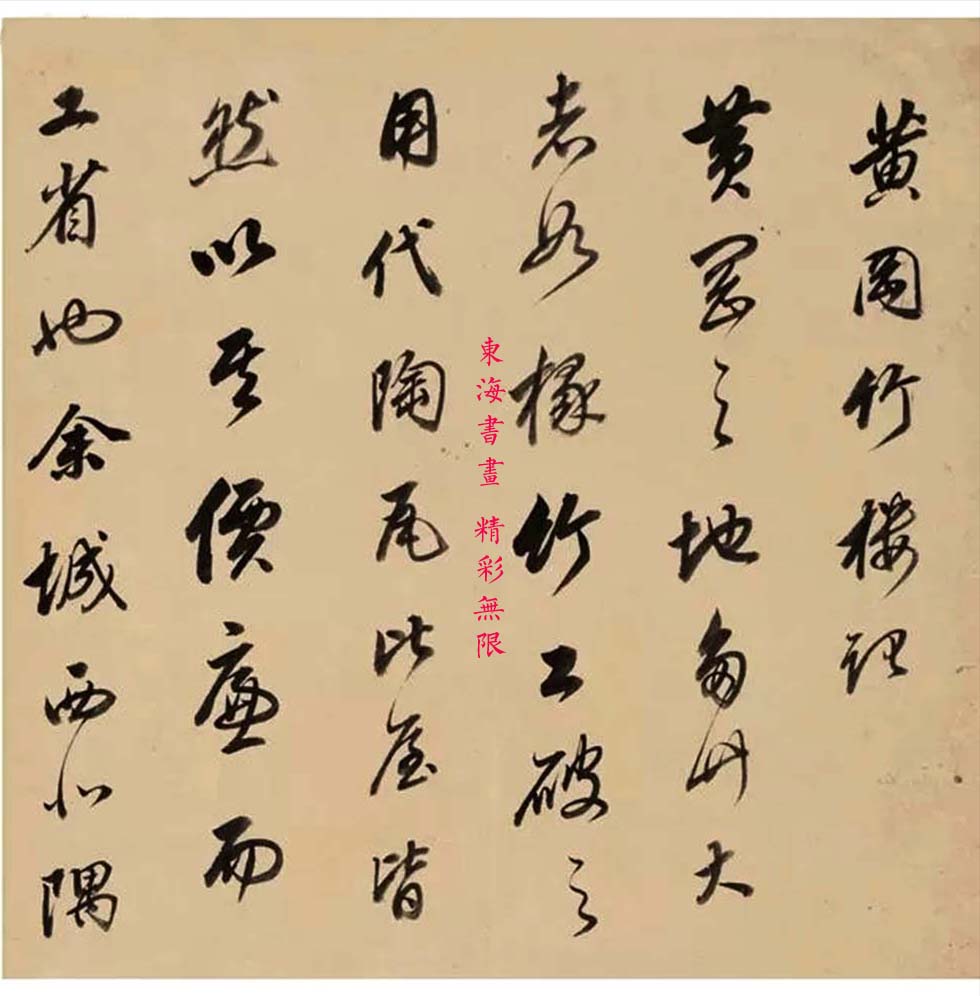 黄岡竹樓記
黄岡之地多竹大
者如椽竹工破之
用代陶瓦比屋皆
然以其價廉而
工省也余城西北隅
東海書畫 精彩無限